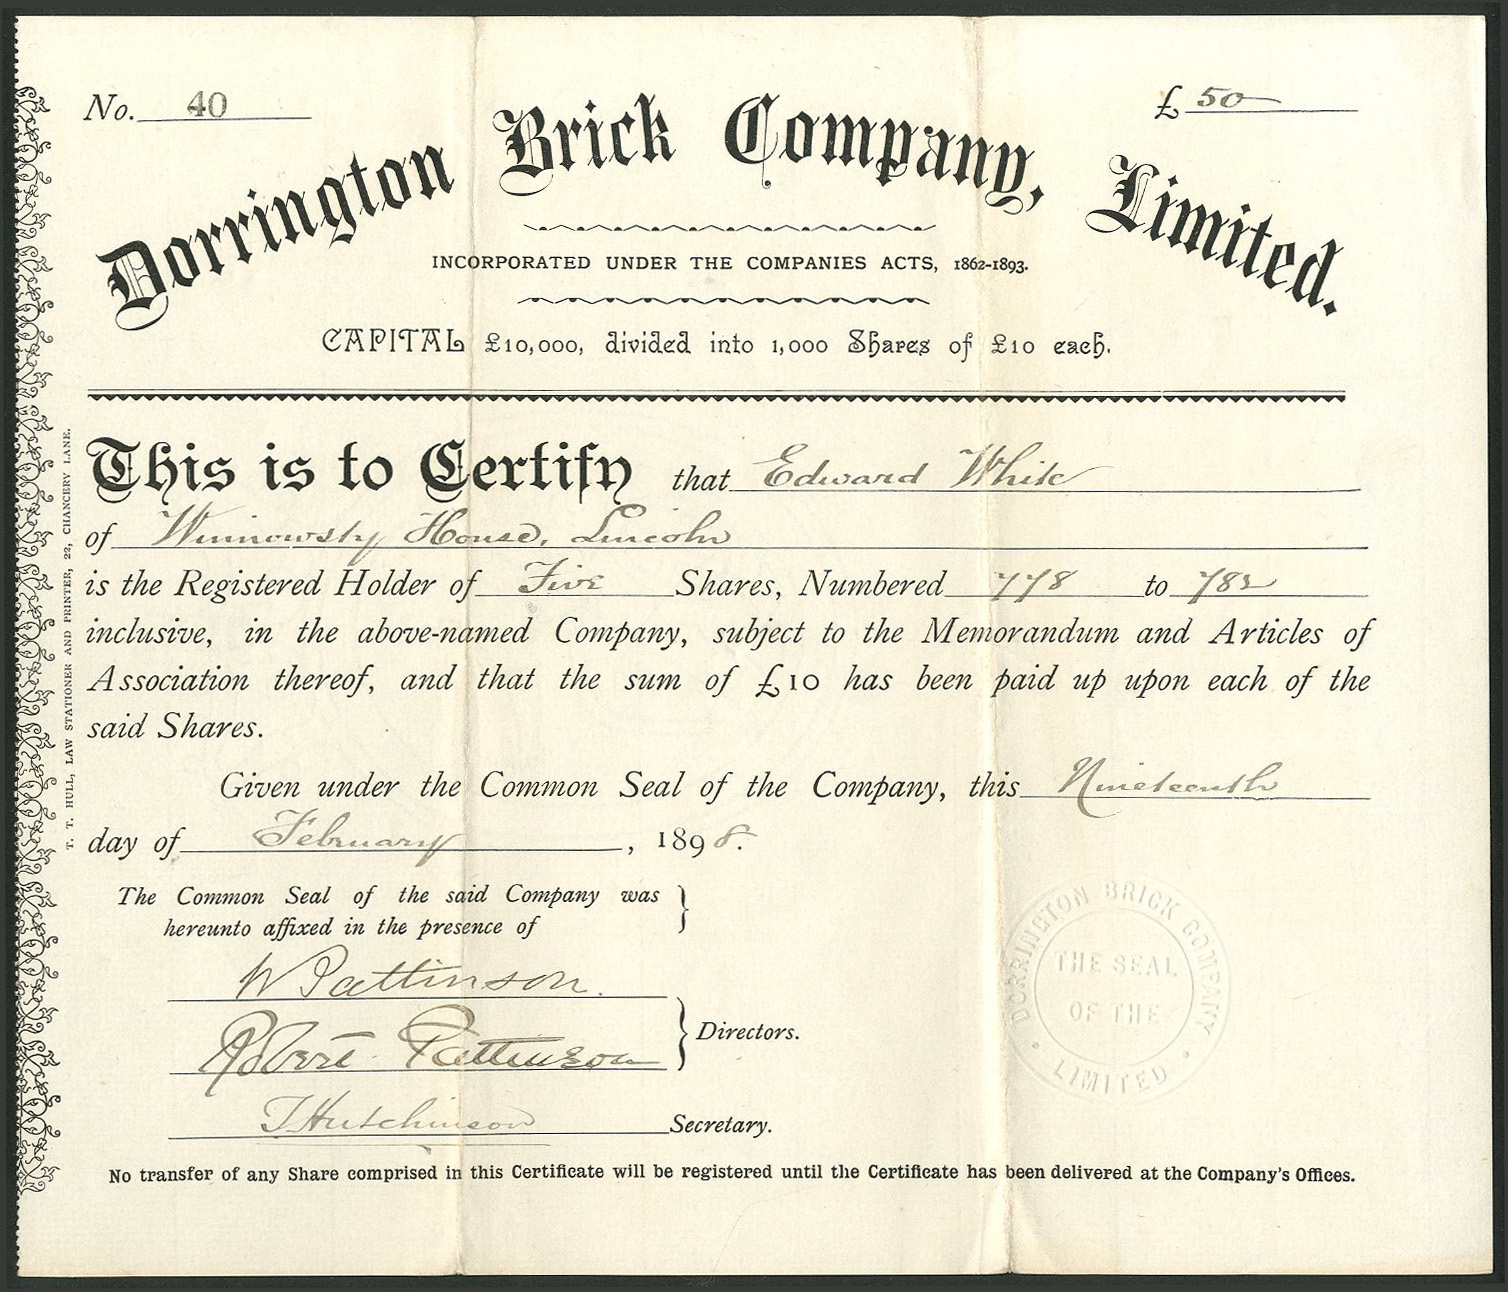 No. 40
£ 50
Dorrington Brick Company, Limited.
INCORPORATED UNDER THE COMPANIES ACTS, 1862-1893.
CAPITAL £10,000, divided into 1,000 Shares of £10 each.
This is to Certify that Edward White
of Winnowsty House, Lincoln
is the Registered Holder of Five Shares, Numbered 778 to 782
inclusive, in the above-named Company, subject to the Memorandum and Articles of
Association thereof, and that the sum of £10 has been paid up upon each of the
said Shares.
Given under the Common Seal of the Company, this Nineteenth
day of February, 1898.
The Common Seal of the said Company was
hereunto affixed in the presence of
W Pattinson.
Robert Pattinson
Directors.
T Hutchinson Secretary.
DORRINGTON BRICK COMPANY
THE SEAL
OF THE
LIMITED
No transfer of any Share comprised in this Certificate will be registered until the Certificate has been delivered at the Company's Offices.
T. T. HULL, LAW STATIONER AND PRINTER, 22, CHANCERY LANE.